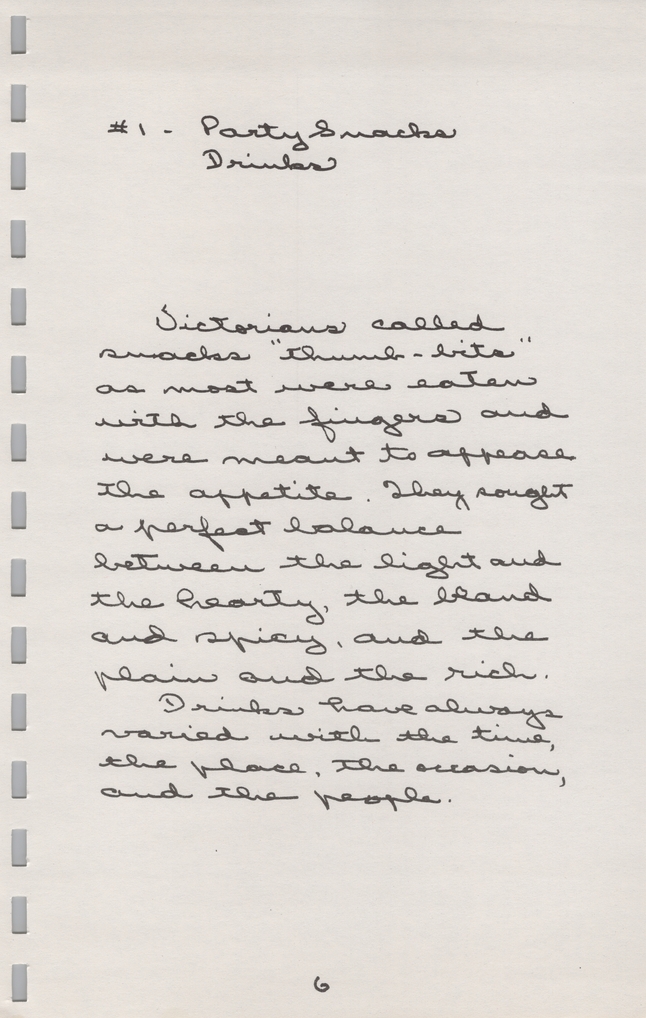 #1 - Party Snacks
Drinks
Victorians called
snacks "thumb-bits"
as most were eaten
with the fingers and
were meant to appease
the appetite. They sought
a perfect balance
between the light and
the hearty, the bland
and spicy, and the
plain and the rich.
Drinks have always
varied with the time,
the place, the occasion,
and the people.
6